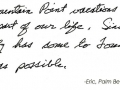 ountain Point vacations
art of our life. Sin
ty has some to Foun
as possible.
-Eric, Palm Be